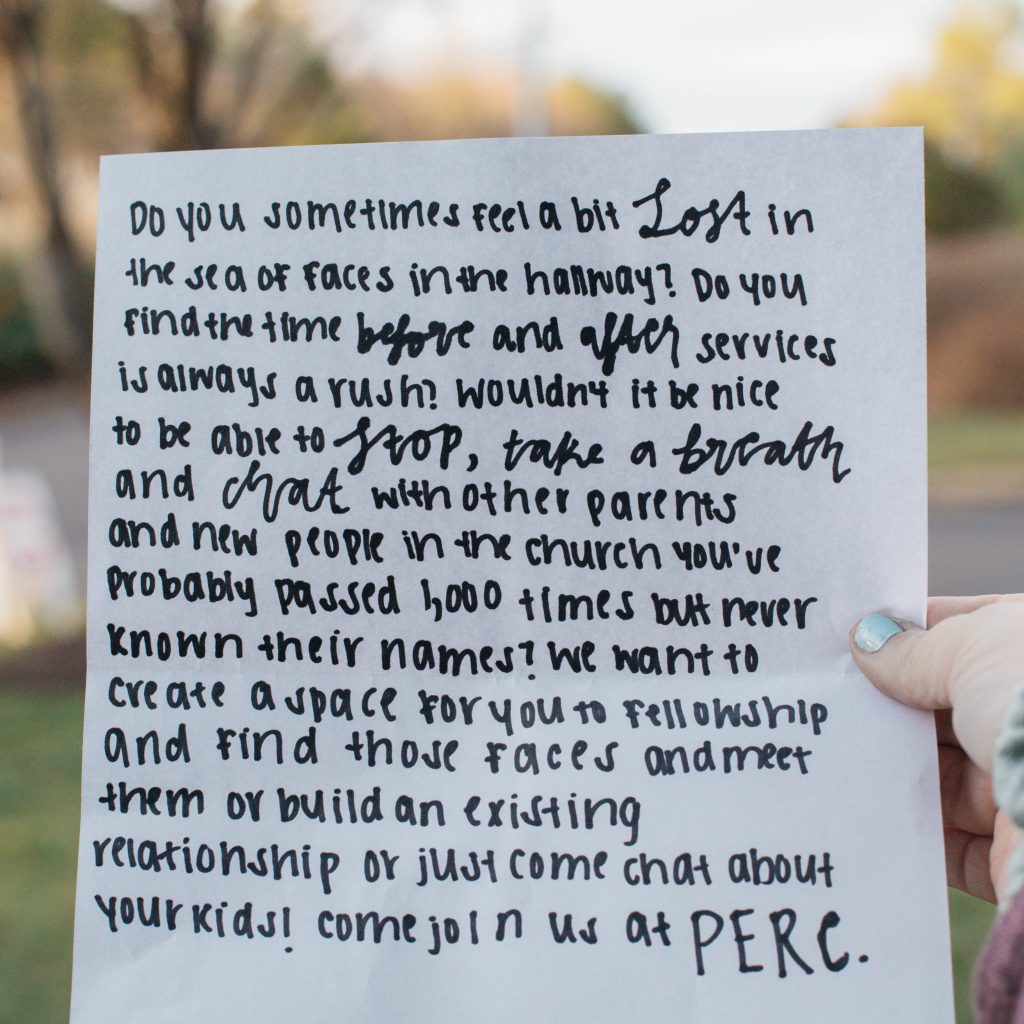 Do you sometimes feel a bit Lost in
the sea of faces in the hallway? Do you
find the time before and after services
is always a rush? Wouldn't it be nice
to be able to stop, take a breath
and chat with other parents
and new people in the church you've
probably passed 1,000 times but never
known their names? We want to
create a space for you to fellowship
and find those faces and meet
them or build an existing
relationship or just come chat about
your kids! Come join us at PERC.